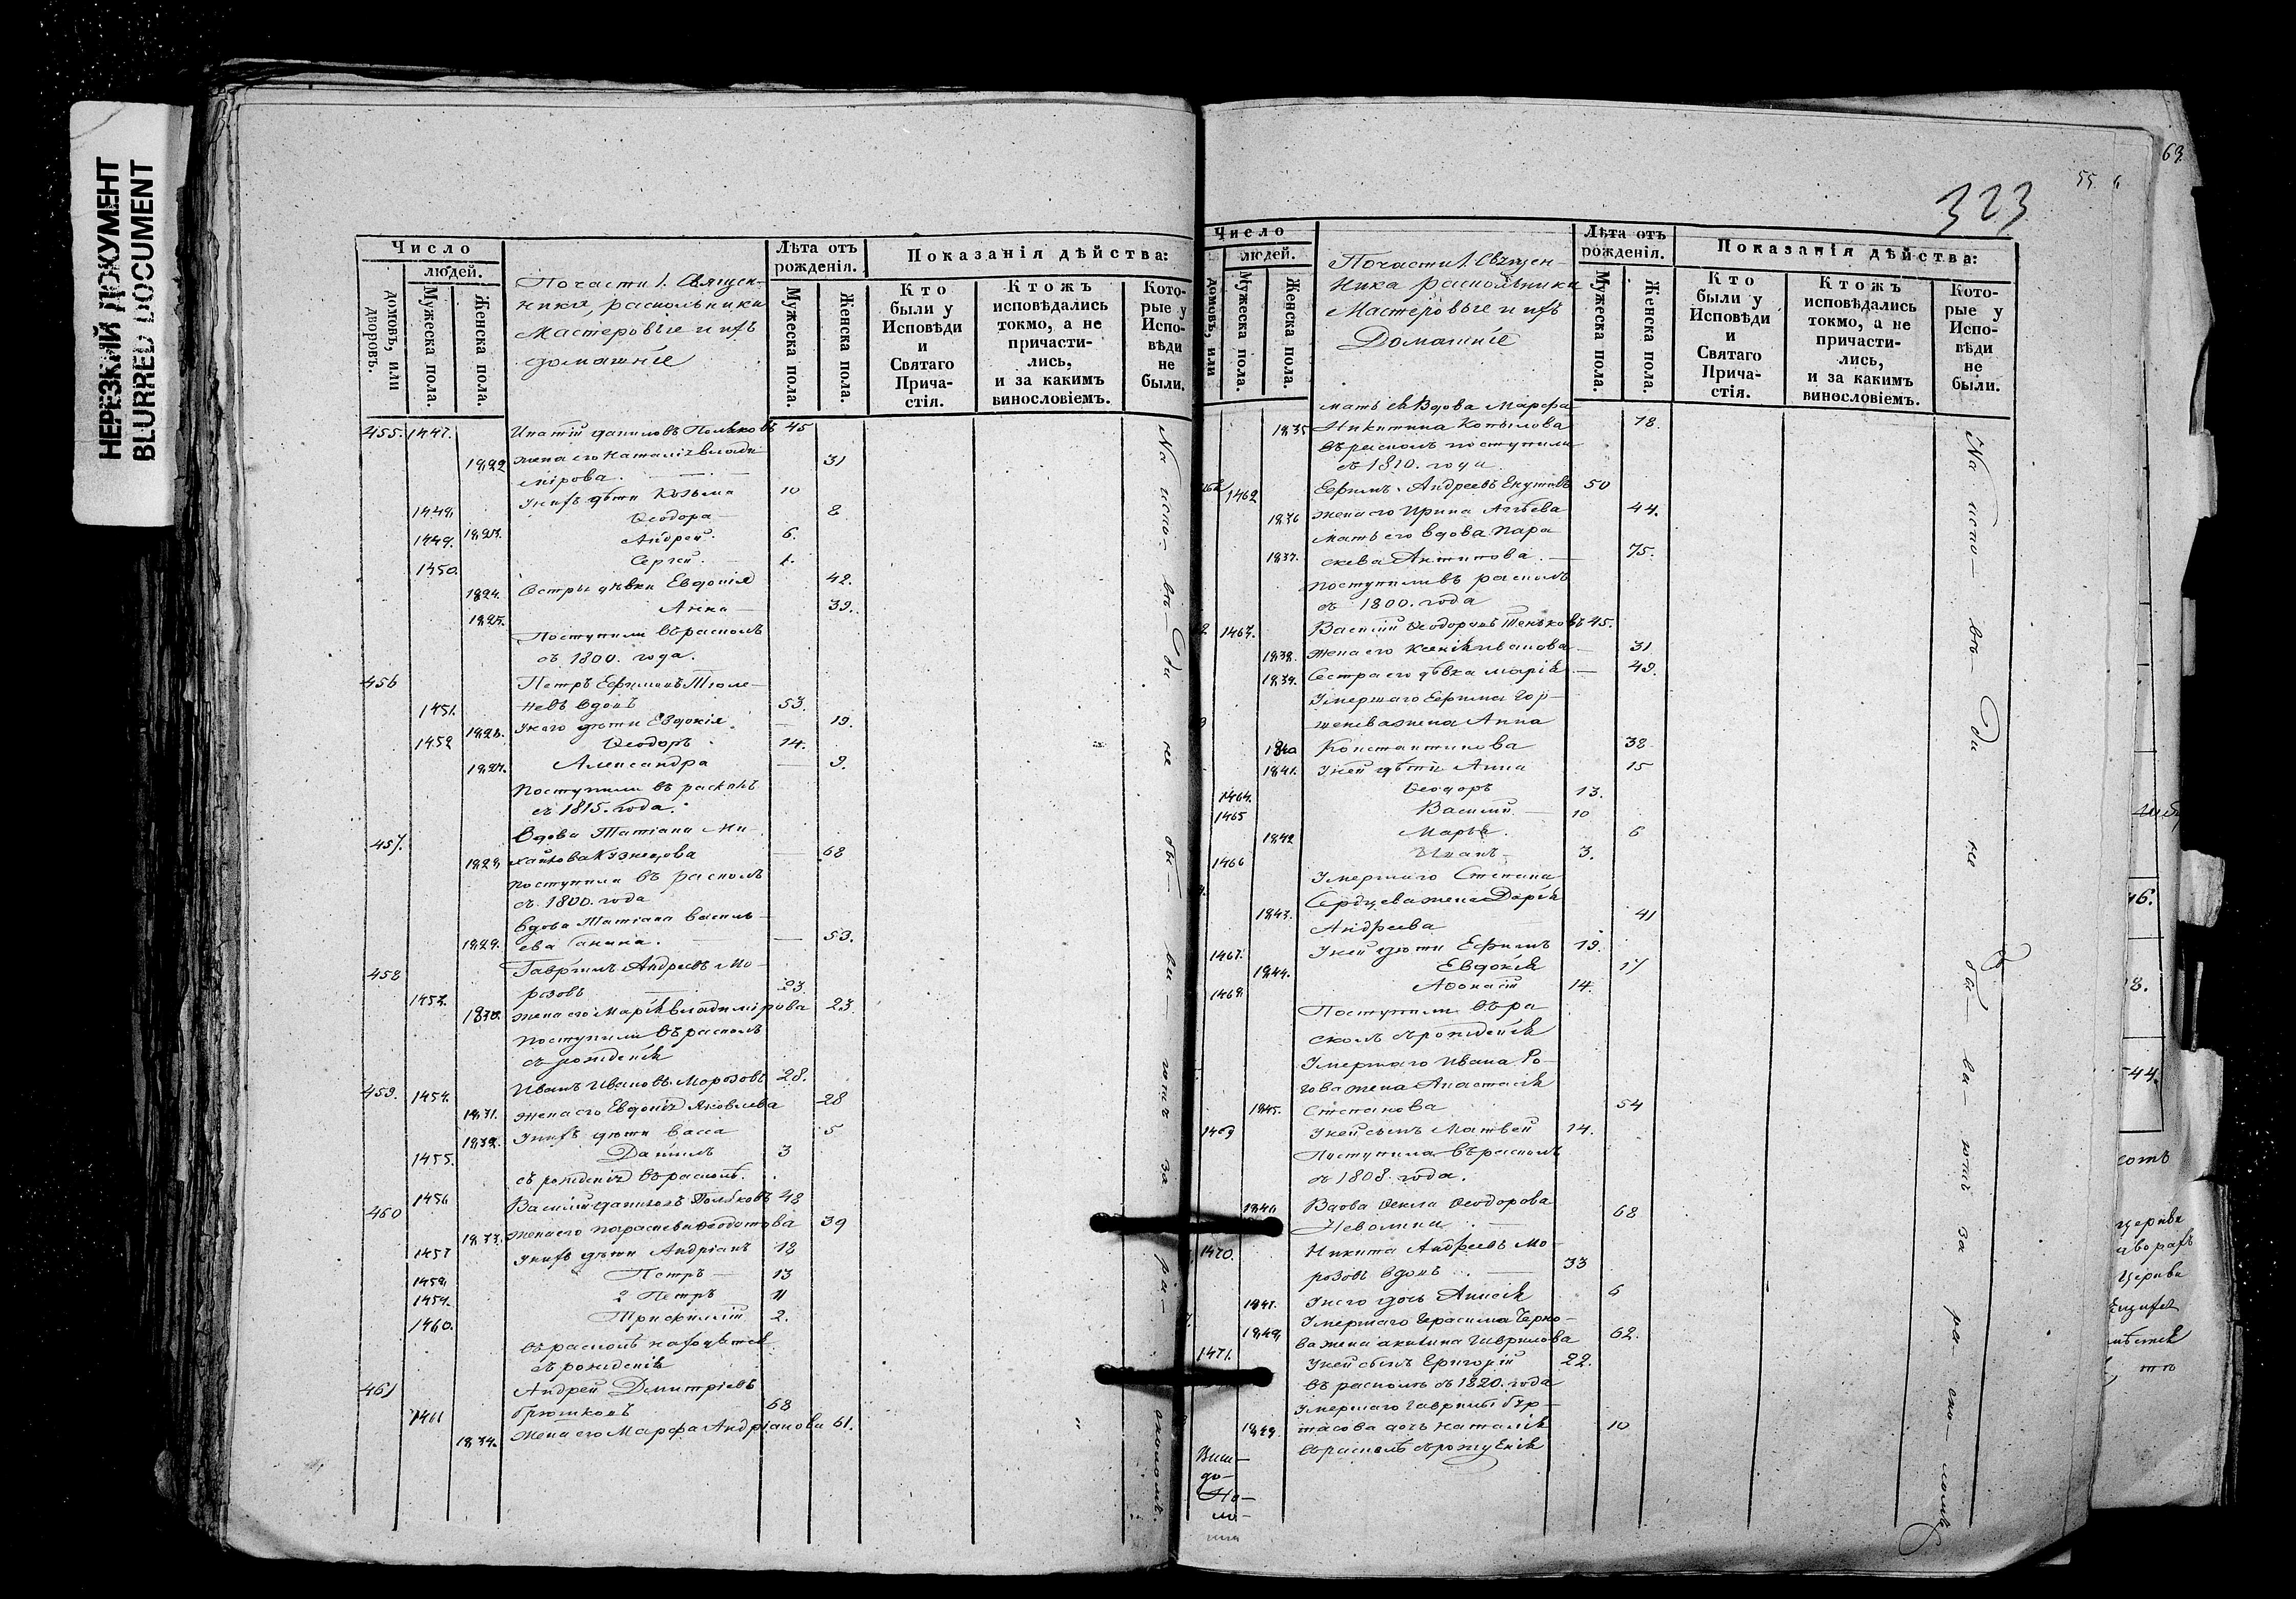 НЕРЕЗКИЙ ДОКУМЕНТ
BLURRED DOCUMENT
Число
людей.
домовъ, или дворовъ.
Мужеска пола.
Женска пола.
По части 1. Священ-
ника, раскольники
Мастеровые и ихъ
домашніе
Лѣта отъ рожденія.
Мужеска пола.
Женска пола.
Показанія дѣйства:
Кто были у Исповѣди и Святаго Причастія.
Ктожъ исповѣдались токмо, а не причастились, и за какимъ винословіемъ.
Которые у Исповѣди не были.
455. 1447. Ипатій Даниловъ Поляковъ 45
1822 жена его Наталія Влади- 31
мірова.
1448. У нихъ дѣти Козьма 10
1823. Ѳеодора 8
1449. Андрей 6.
1450. Сергей 1.
1824. Сестры дѣвки Евдокія 42.
1825. Анна 39.
Поступили въ расколъ
съ 1800. года.
456 Петръ Ефимовъ Тюле-
1451. невъ вдовъ 53.
1826. У него дѣти Евдокія 19.
1452 Ѳеодоръ 14.
1827. Александра 9.
Поступили въ расколъ
съ 1815. года.
457. Вдова Татіана Ми-
1828 хайлова Кузнецова 68
Поступила въ расколъ
съ 1800. года
вдова Татіана Василь-
1829. ева 53.
458 Гавріилъ Андреевъ Мо-
1453. розовъ 23.
1830. жена его Марія Владимірова 23
Поступили въ расколъ
съ рожденія
459. 1454. Иванъ Ивановъ Морозовъ 28.
1831. жена его Евдокія Яковлева 28
1832. У нихъ дѣти Васса 5
1455. Даніилъ 3
съ рожденія въ расколѣ.
460 1456 Василій Даниловъ Поляковъ 48
1833. жена его Параскева Ѳеодотова 39
1457 У нихъ дѣти Андріанъ 18
1458. Петръ 13
1459. 2 Петръ 11
1460. Трифиллій 2.
въ расколѣ находятся
съ рожденія
461 Андрей Дмитріевъ
1461 Брюшковъ 68
1834. жена его Марфа Андріанова 61.
На испо- вѣ- ди не бы- ва- ютъ за ра- сколомъ.
323
63.
55
Число
людей.
домовъ, или
Мужеска пола.
Женска пола.
По части 1. Священ-
ника раскольники
Мастеровые и ихъ
Домашніе
Лѣта отъ рожденія.
Мужеска пола.
Женска пола.
Показанія дѣйства:
Кто были у Исповѣди и Святаго Причастія.
Ктожъ исповѣдались токмо, а не причастились, и за какимъ винословіемъ.
Которые у Исповѣди не были.
мать ея Вдова Марфа
1835 Никитина Копылова 78.
въ расколъ поступили
съ 1810. года
1462 Ефимъ Андреевъ 50
1836 жена его Ирина 44.
мать его вдова Пара
1837. скева Антипова. 75.
поступили въ расколъ
съ 1800. года
1463. Василій Ѳеодоровъ 45.
1838. жена его Ксенія Иванова 31
1839. Сестра его дѣвка Марія 49.
Умершаго Ефима Гор-
шенева жена Анна
1840 Константинова 38
1841. У ней дѣти Анна 15
1464. Ѳеодоръ 13.
1465 Василій 10
1842 Марья. 6
1466 Иванъ 3.
Умершаго Степана
Сердцева жена Дарія
1843. Андреева 41
1467. У ней дѣти Ефимъ 19.
1844. Евдокія 17
1468 Аѳонасій 14.
Поступили въ ра
сколъ съ рожденія
Умершаго Ивана Ро-
гова жена Анастасія
1845. Степанова 54
1469 У ней сынъ Матвей 14.
Поступила въ расколъ
съ 1808. года.
1846 Вдова Ѳекла Ѳеодорова
Неволина 68
1470. Никита Андреевъ Мо-
розовъ вдовъ 33
1847. У него дочь Анисія 6
Умершаго Герасима Черно-
1848 ва жена Акилина Гаврилова 62.
1471. У ней сынъ Григорій 22.
въ расколѣ съ 1820. года
Умершаго Гавріила Бур-
1849 тасова дочь Наталія 10
въ расколѣ съ рожденія
На испо- вѣ- ди не бы- ва- ютъ за ра- ско- ломъ
46.
8.
44.
церкви
дворахъ
церкви